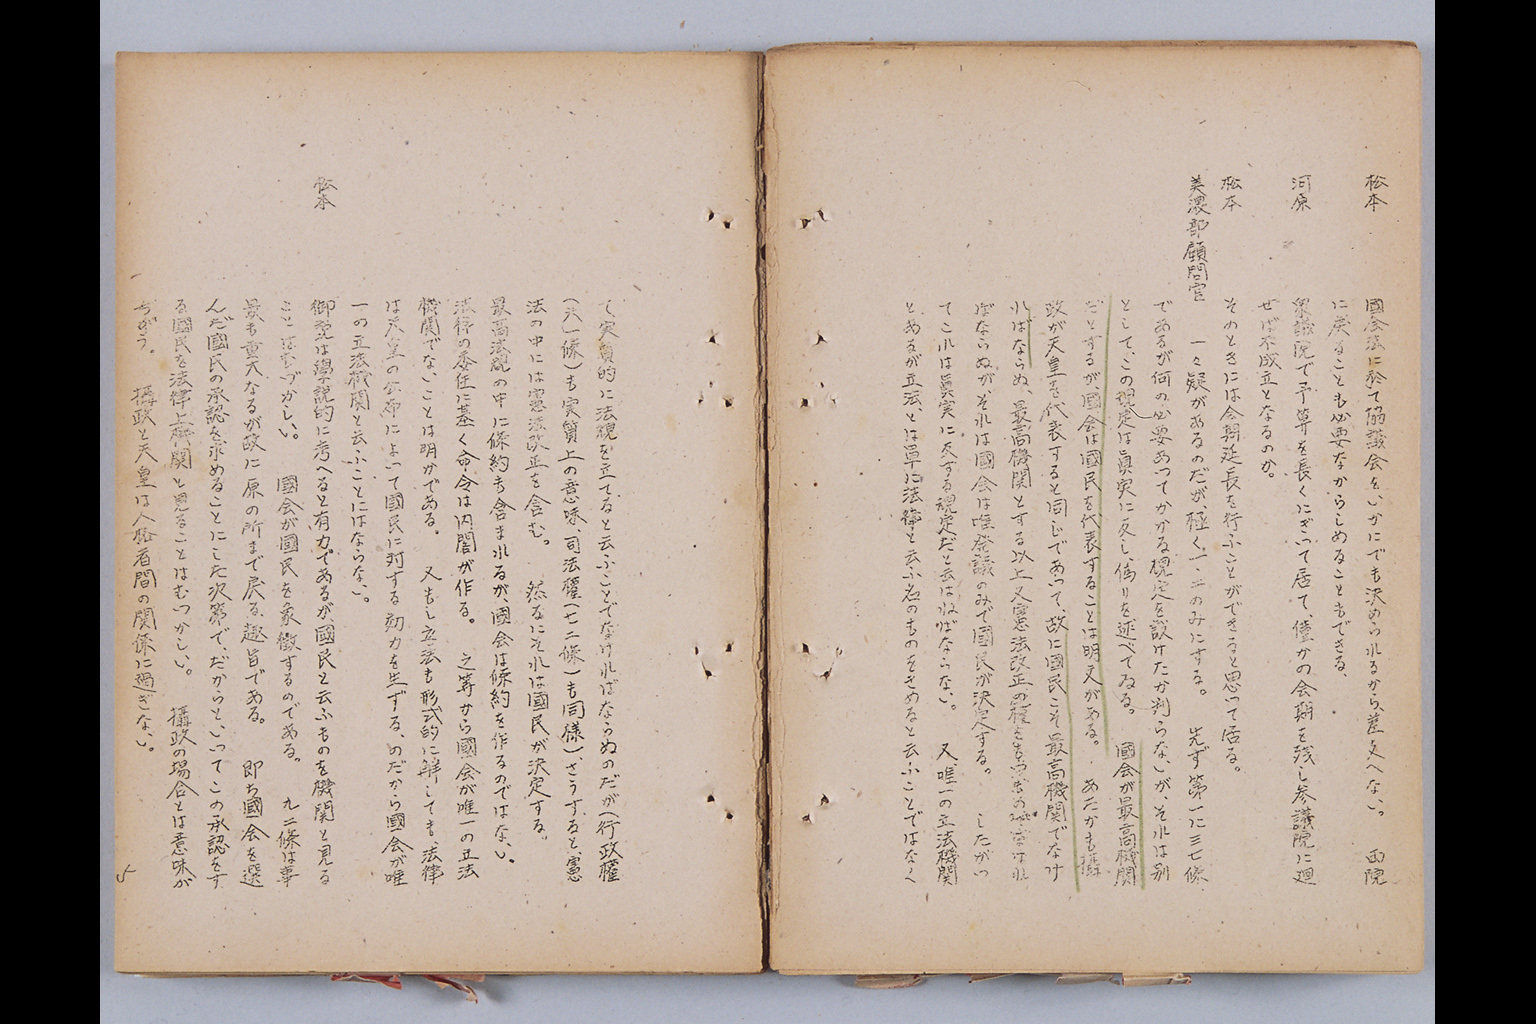 松本　國会法に於て協議会をいかにでも決められるから差支へない。　両院
に戻ることも必要なからしめることもできる。
河原　衆議院で予算を長くにぎって居て、僅かの会期を残し参議院に廻
せば不成立となるのか。
松本　そのときには会期延長を行ふことができると思って居る。
美濃部顧問官　一々疑があるのだが、極く一、二のみにする。　先ず第一に三七條
であるが何の必要あってかかる規定を設けたか判らないが、それは別
として、この規定は眞実に反し、偽りを述べてゐる。　國会が最高機関
だとするが、國会は國民を代表することは明文がある。　あたかも攝
政が天皇を代表すると同じであって、故に國民こそ最高機関でなけ
ればならぬ、最高機関とする以上又憲法改正の権
ばならぬがそれは國会は唯発議のみで國民が決定する。　したがっ
てこれは眞実に反する規定だと云はねばならない。　又唯一の立法機関
とあるが立法とは單に法律と云ふ名のものをきめると云ふことではなく
て、実質的に法規を立てると云ふことでなければならぬのだが（行政権
（六一條）も実質上の意味、司法権（七二條）も同様）、さうすると、憲
法の中には憲法改正を含む。　然るにそれは國民が決定する。
最高法規の中に條約も含まれるが、國会は條約を作るのではない。
法律の委任に基く命令は内閣が作る。　之等から國会が唯一の立法
機関でないことは明かである。　又もし立法も形式的に解しても、法律
は天皇の公布によって國民に対する効力を生ずる、のだから國会が唯
一の立法機関と云ふことにはならない。
松本　御説は學説的に考へると有力であるが、國民と云ふものを機関と見る
ことはむづかしい。　國会が國民を象徴するのである。　九二條は事
最も重大なるが故に原の所まで戻る趣旨である。　即ち國会を選
んだ國民の承認を求めることにした次第で、だからといってこの承認をす
る國民を法律上機関と見ることはむつかしい。　攝政の場合とは意味が
ちがう。　攝政と天皇は人格者間の関係に過ぎない。
5